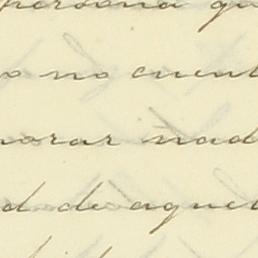 persona qu
o no cuent
orar nad
d de aquel